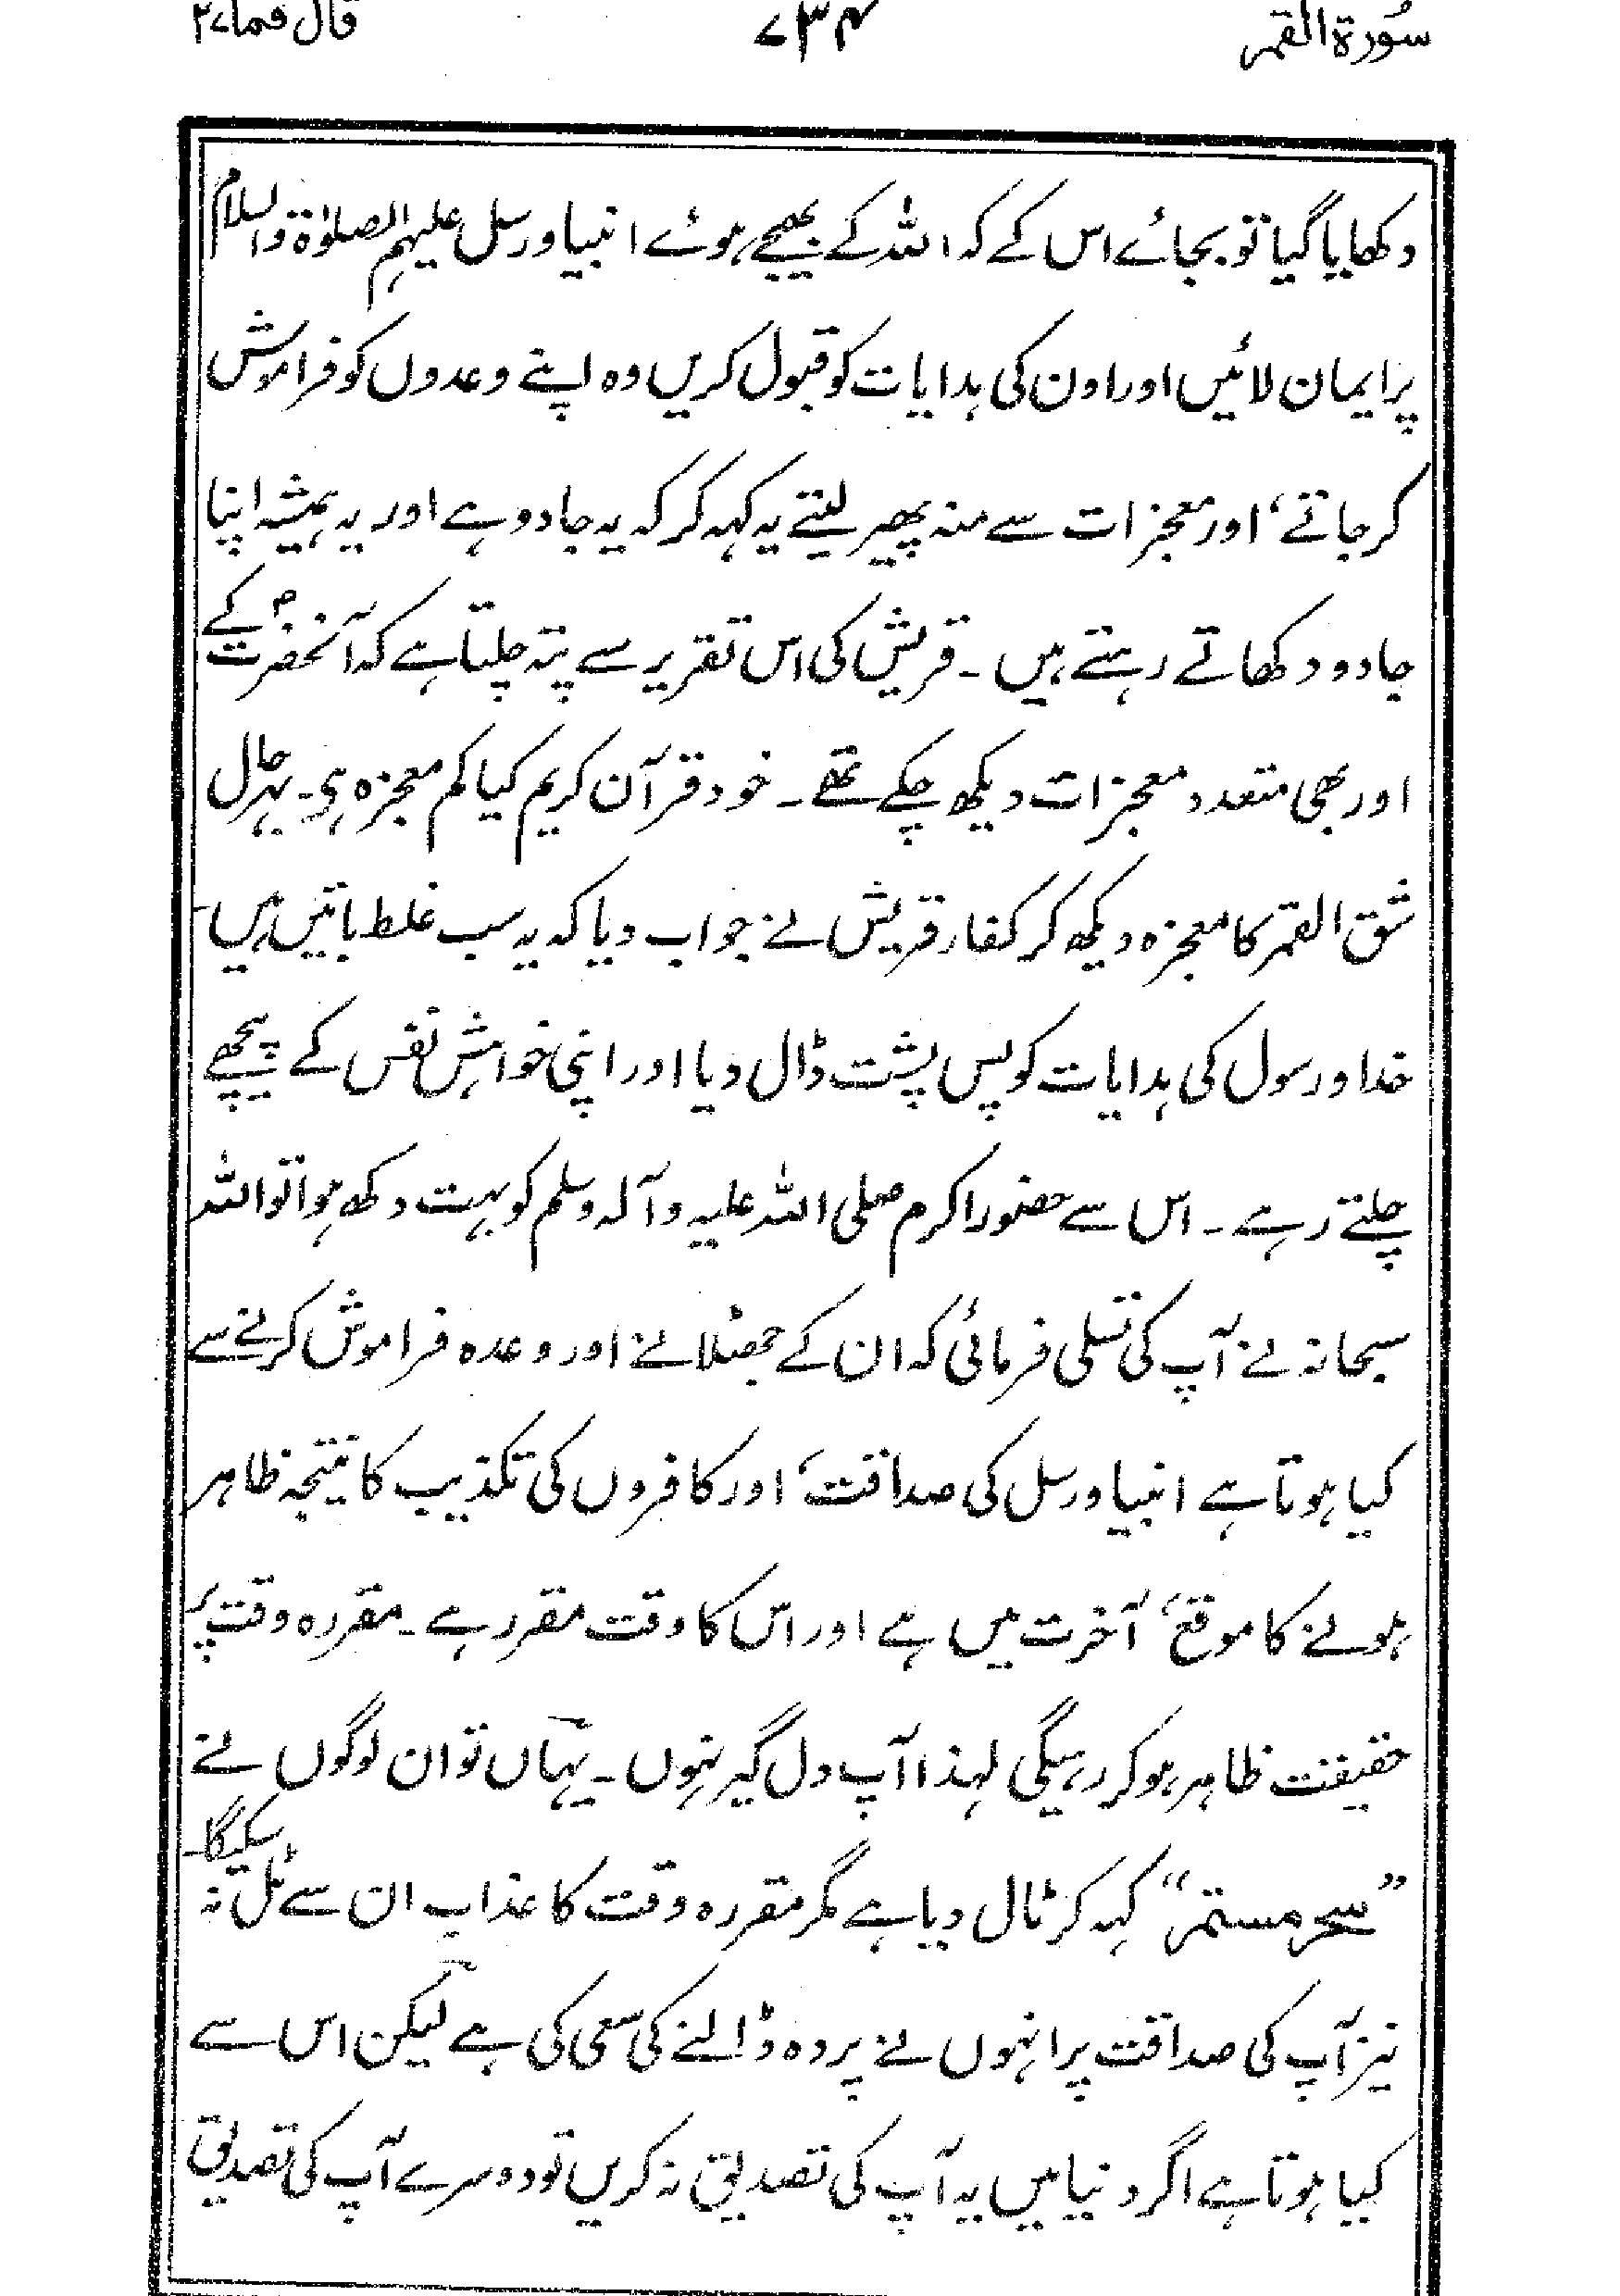 سُورۃ القمر ۷۳۴ قال فما ۲۷
دکھایا گیا تو بجائے اس کے کہ اللہ کے بھیجے ہوئے انبیا ورسل علیہم الصلوٰۃ والسلام
پر ایمان لائیں اور اون کی ہدایات کو قبول کریں وہ اپنے وعدوں کو فراموش
کرجاتے، اور معجزات سے منہ پھیر لیتے یہ کہہ کر کہ یہ جادو ہے اور یہ ہمیشہ اپنا
جادو دکھاتے رہتے ہیں۔ قریش کی اس تقریر سے پتہ چلتا ہے کہ آنحضرتؐ کے
اور بھی متعدد معجزات دیکھ چکے تھے۔ خود قرآن کریم کیا کم معجزہ ہی۔ بہرحال
شق القمر کا معجزہ دیکھ کر کفار قریش نے جواب دیا کہ یہ سب غلط باتیں ہیں۔
خدا ورسول کی ہدایات کو پس پشت ڈال دیا اور اپنی خواہش نفس کے پیچھے
چلتے رہے۔ اس سے حضور اکرم صلی اللہ علیہ وآلہ وسلم کو بہت دکھ ہوا تو اللہ
سبحانہ نے آپ کی تسلی فرمائی کہ ان کے جھٹلانے اور وعدہ فراموش کرنے سے
کیا ہوتا ہے انبیا ورسل کی صداقت، اور کافروں کی تکذیب کا نتیجہ ظاہر
ہونے کا موقع، آخرت میں ہے اور اس کا وقت مقرر ہے۔ مقررہ وقت پر
حقیقت ظاہر ہو کر رہیگی لہذا آپ دل گیر نہوں۔ یہاں تو ان لوگوں نے
”سحر مستمر“ کہہ کر ٹال دیا ہے مگر مقررہ وقت کا عذاب ان سے ٹل نہ سکیگا۔
نیز آپ کی صداقت پر انہوں نے پردہ ڈالنے کی سعی کی ہے لیکن اس سے
کیا ہوتا ہے اگر دنیا میں یہ آپ کی تصدیق نہ کریں تو دوسرے آپ کی تصدیق